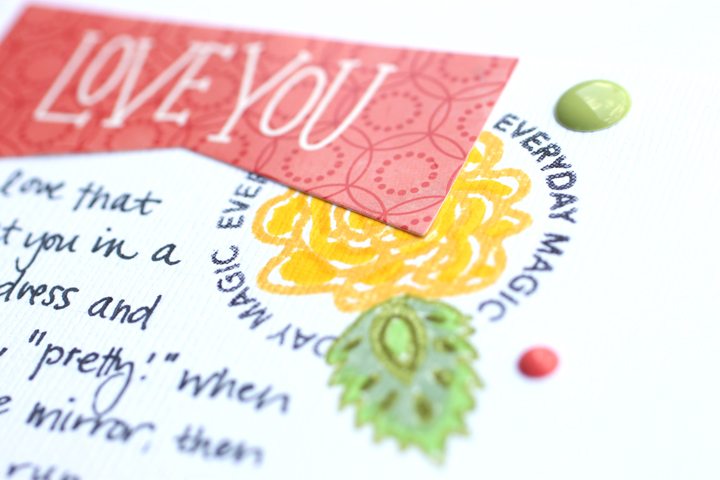 LOVE YOU
EVERYDAY MAGIC EVERYDAY MAGIC
love that
you in a
dress and
"pretty!" when
mirror, then